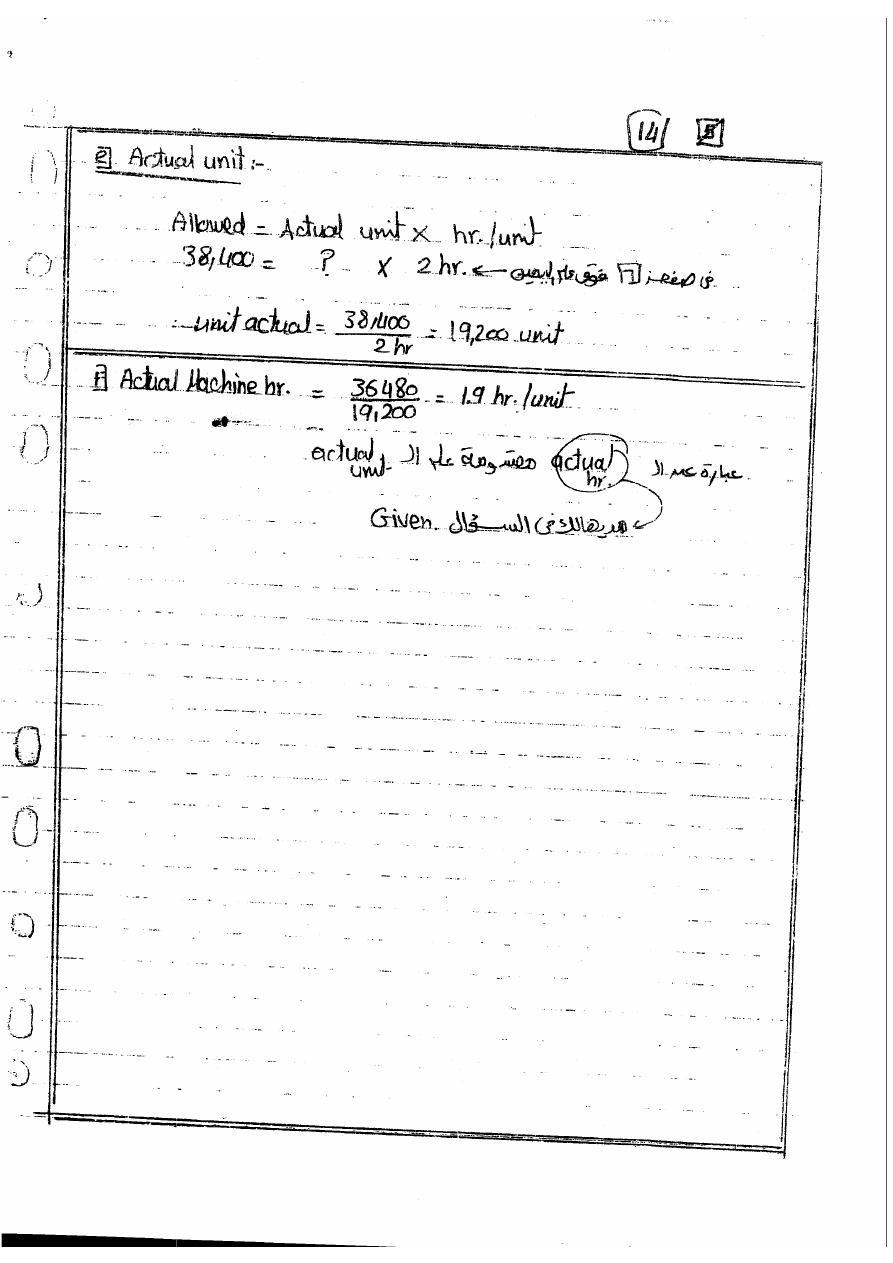 14 5
e Actual unit :-
Allowed = Actual unit × hr./unit
38,400 = ? × 2 hr. ← فى صفحة 6 فوق على اليمين
∴ unit actual = 38,400 / 2 hr = 19,200 unit
f Actual Machine hr. = 36480 / 19,200 = 1.9 hr./unit
عبارة عن ال actual hr. مقسومة على ال actual unit
Given. فى السؤال